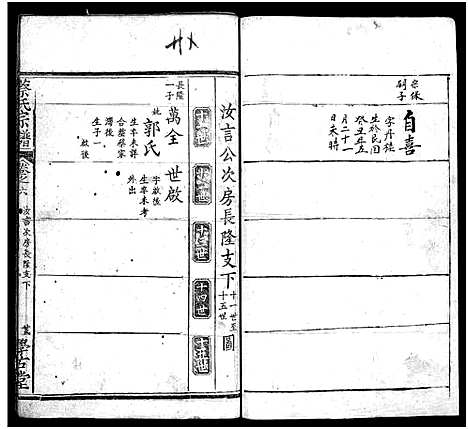 宗保
嗣子
自喜
字丹桂
生於民国
癸丑年五
月二十一
日未時
汝言公次房長隆支下
十一世至
十五世
圖
十一世
十二世
十三世
十四世
十五世
長隆
一子
萬全
妣郭氏
生卒未詳
合葬
生子一
啟後
世啟
字啟後
生卒未考
外出
氏宗譜
卷之六
汝言次房長隆支下